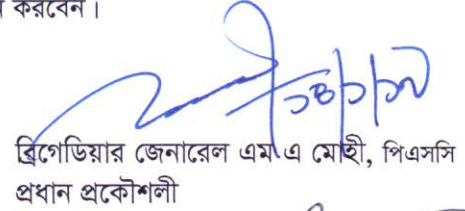 করবেন।
ব্রিগেডিয়ার জেনারেল এম এ মোহী, পিএসসি
প্রধান প্রকৌশলী